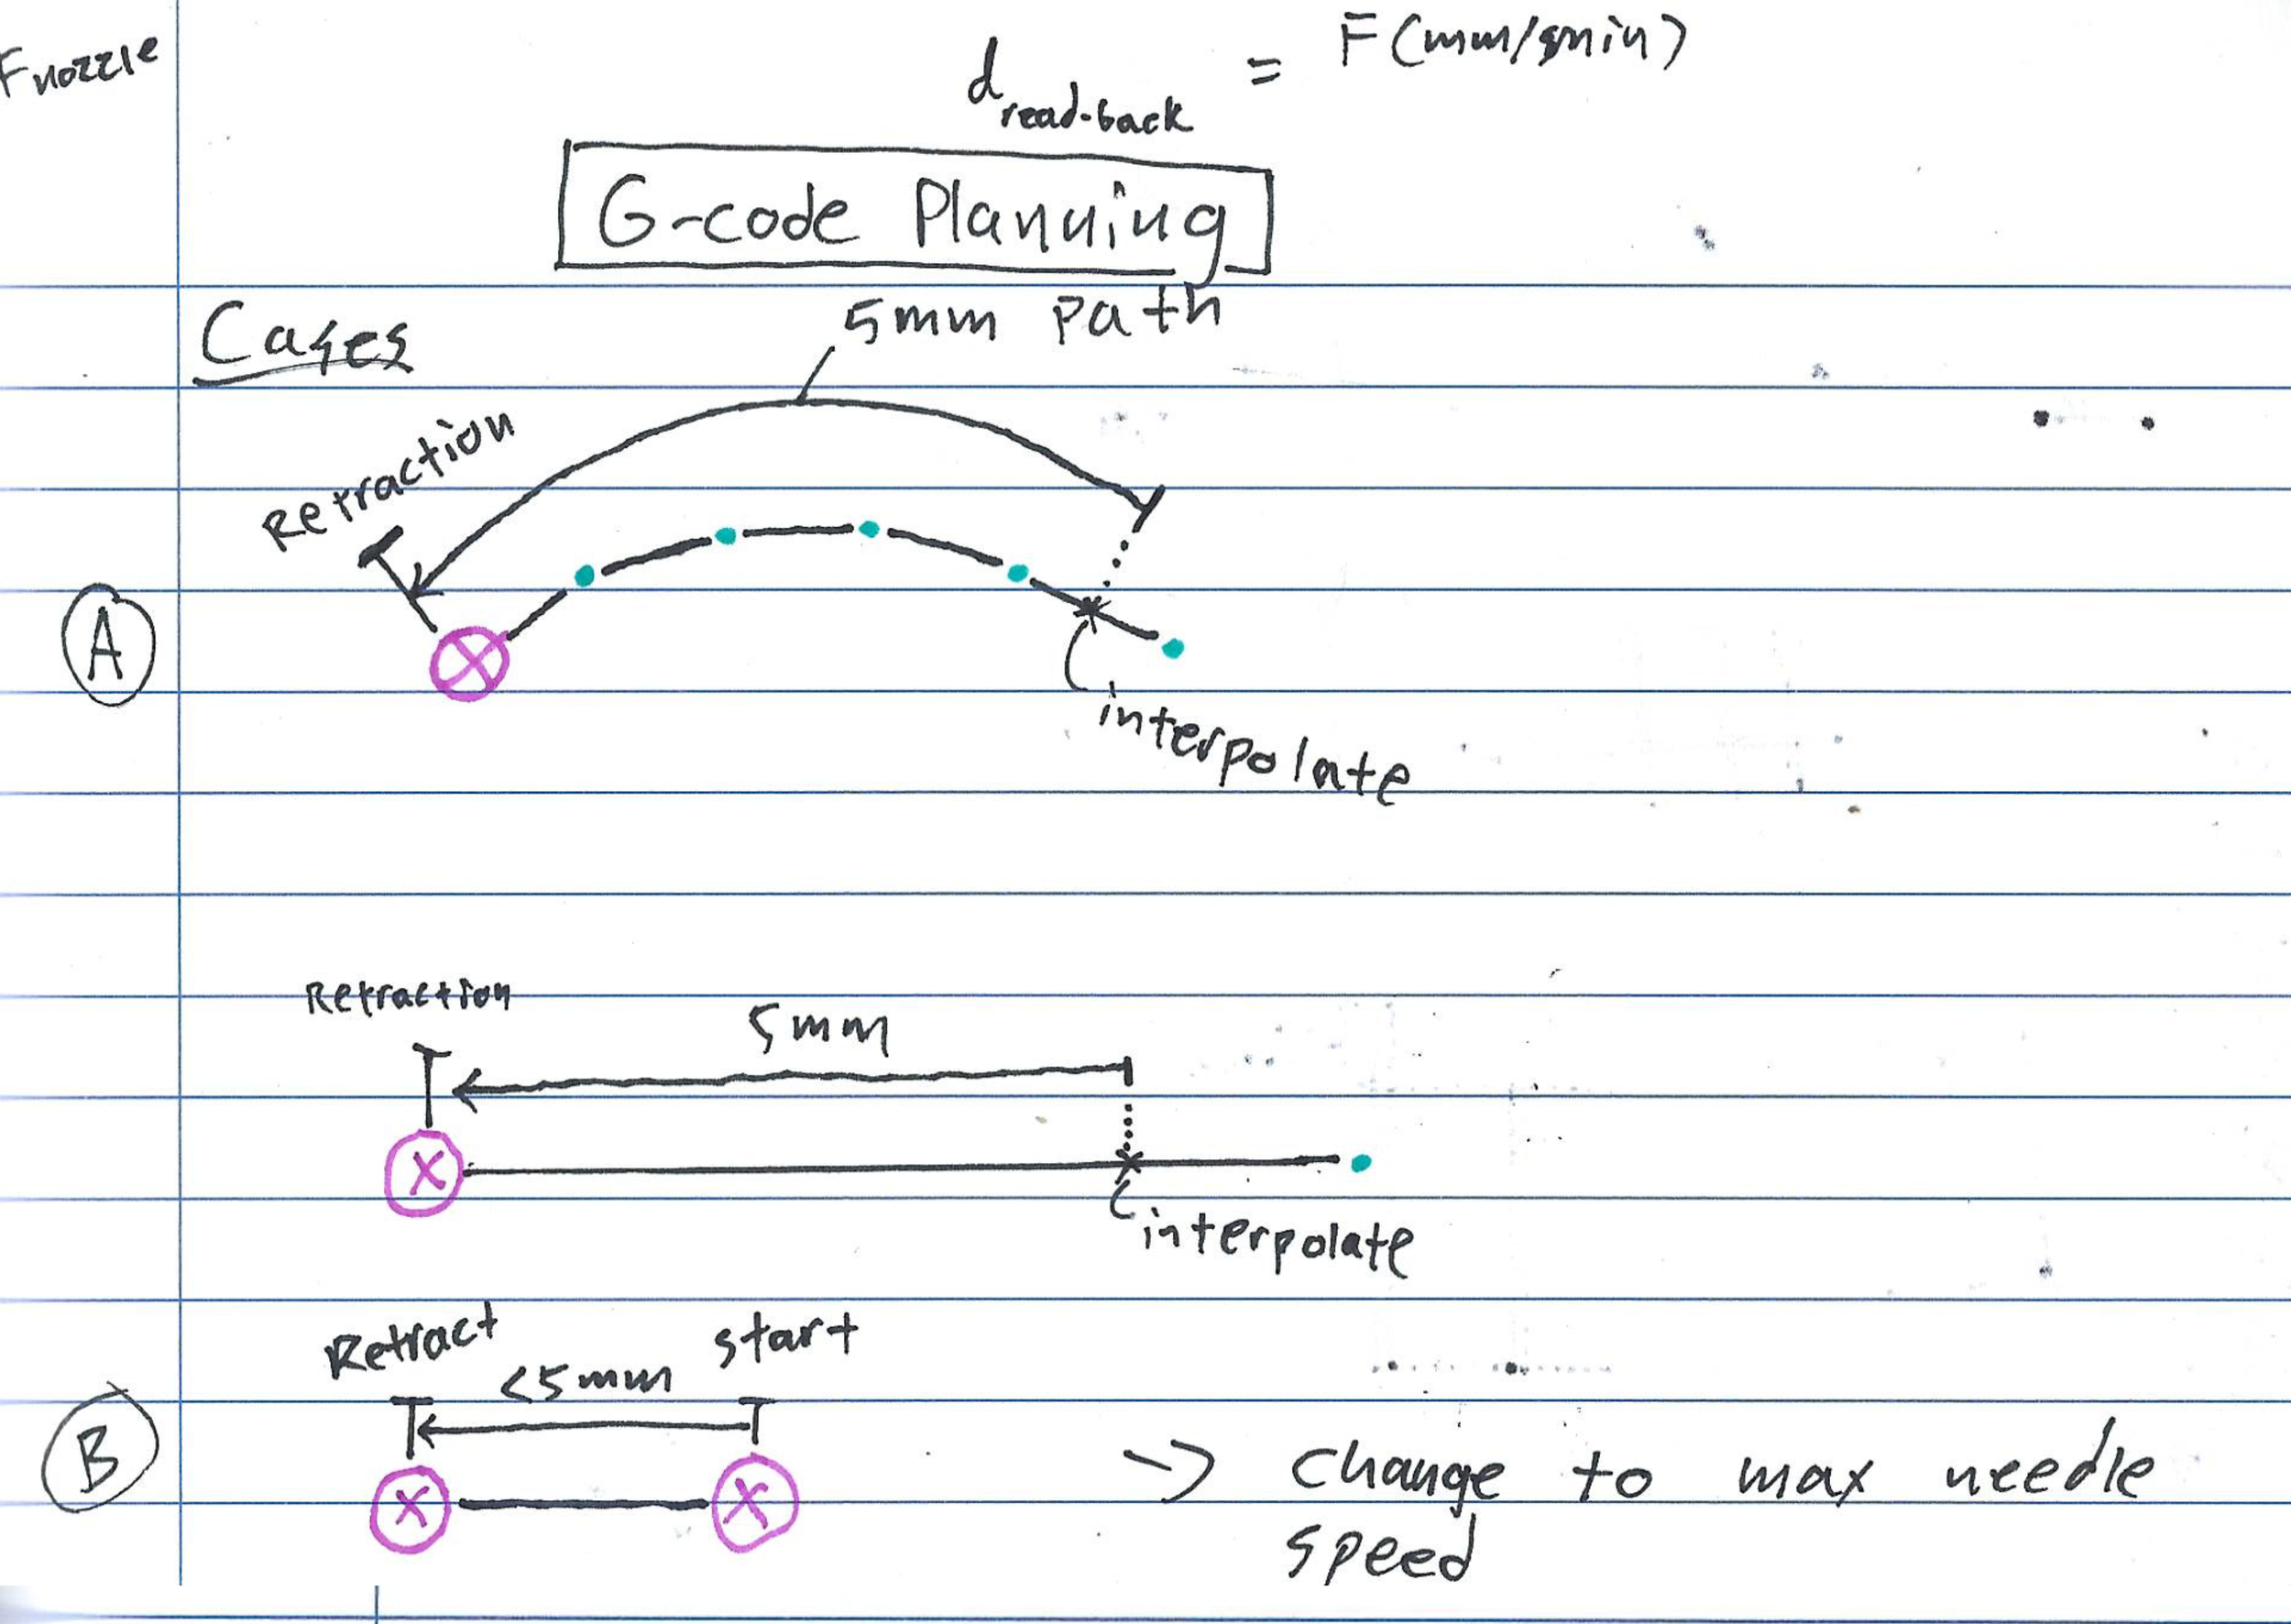 Fnozzle
d read-back = F(mm/min)
G-code Planning
Cases
5mm path
Retraction
A
interpolate
Retraction
5mm
X
X
interpolate
Retract
<5mm
start
B
X
X
-> change to max needle
speed